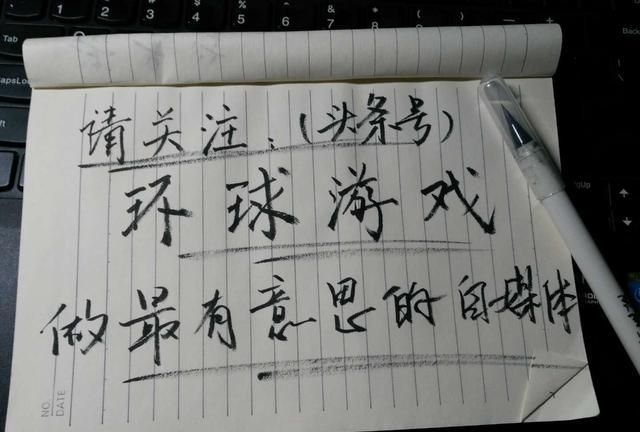 请关注:(头条号)
环球游戏
做最有意思的自媒体
NO.
DATE
Tab
CapsLo
Shift
2
3
4
5
6
7
8
9
Back
PgUp